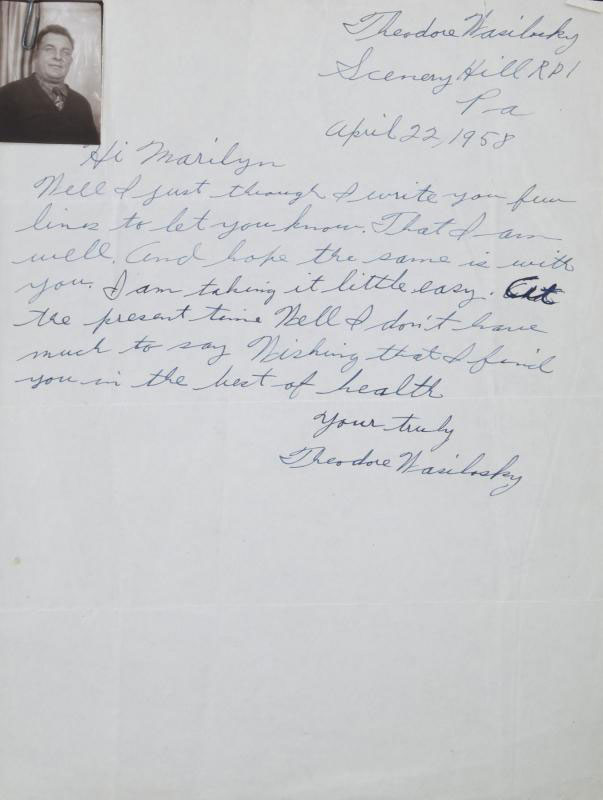 Theodore Wasilosky
Scenery Hill RD1
Pa
April 22, 1958
Hi Marilyn
Well I just though I write you few
lines to let you know. That I am
well. And hope the same is with
you. I am taking it little easy. At
the present time Well I don't have
much to say Wishing that I find
you in the best of health
Your truly
Theodore Wasilosky